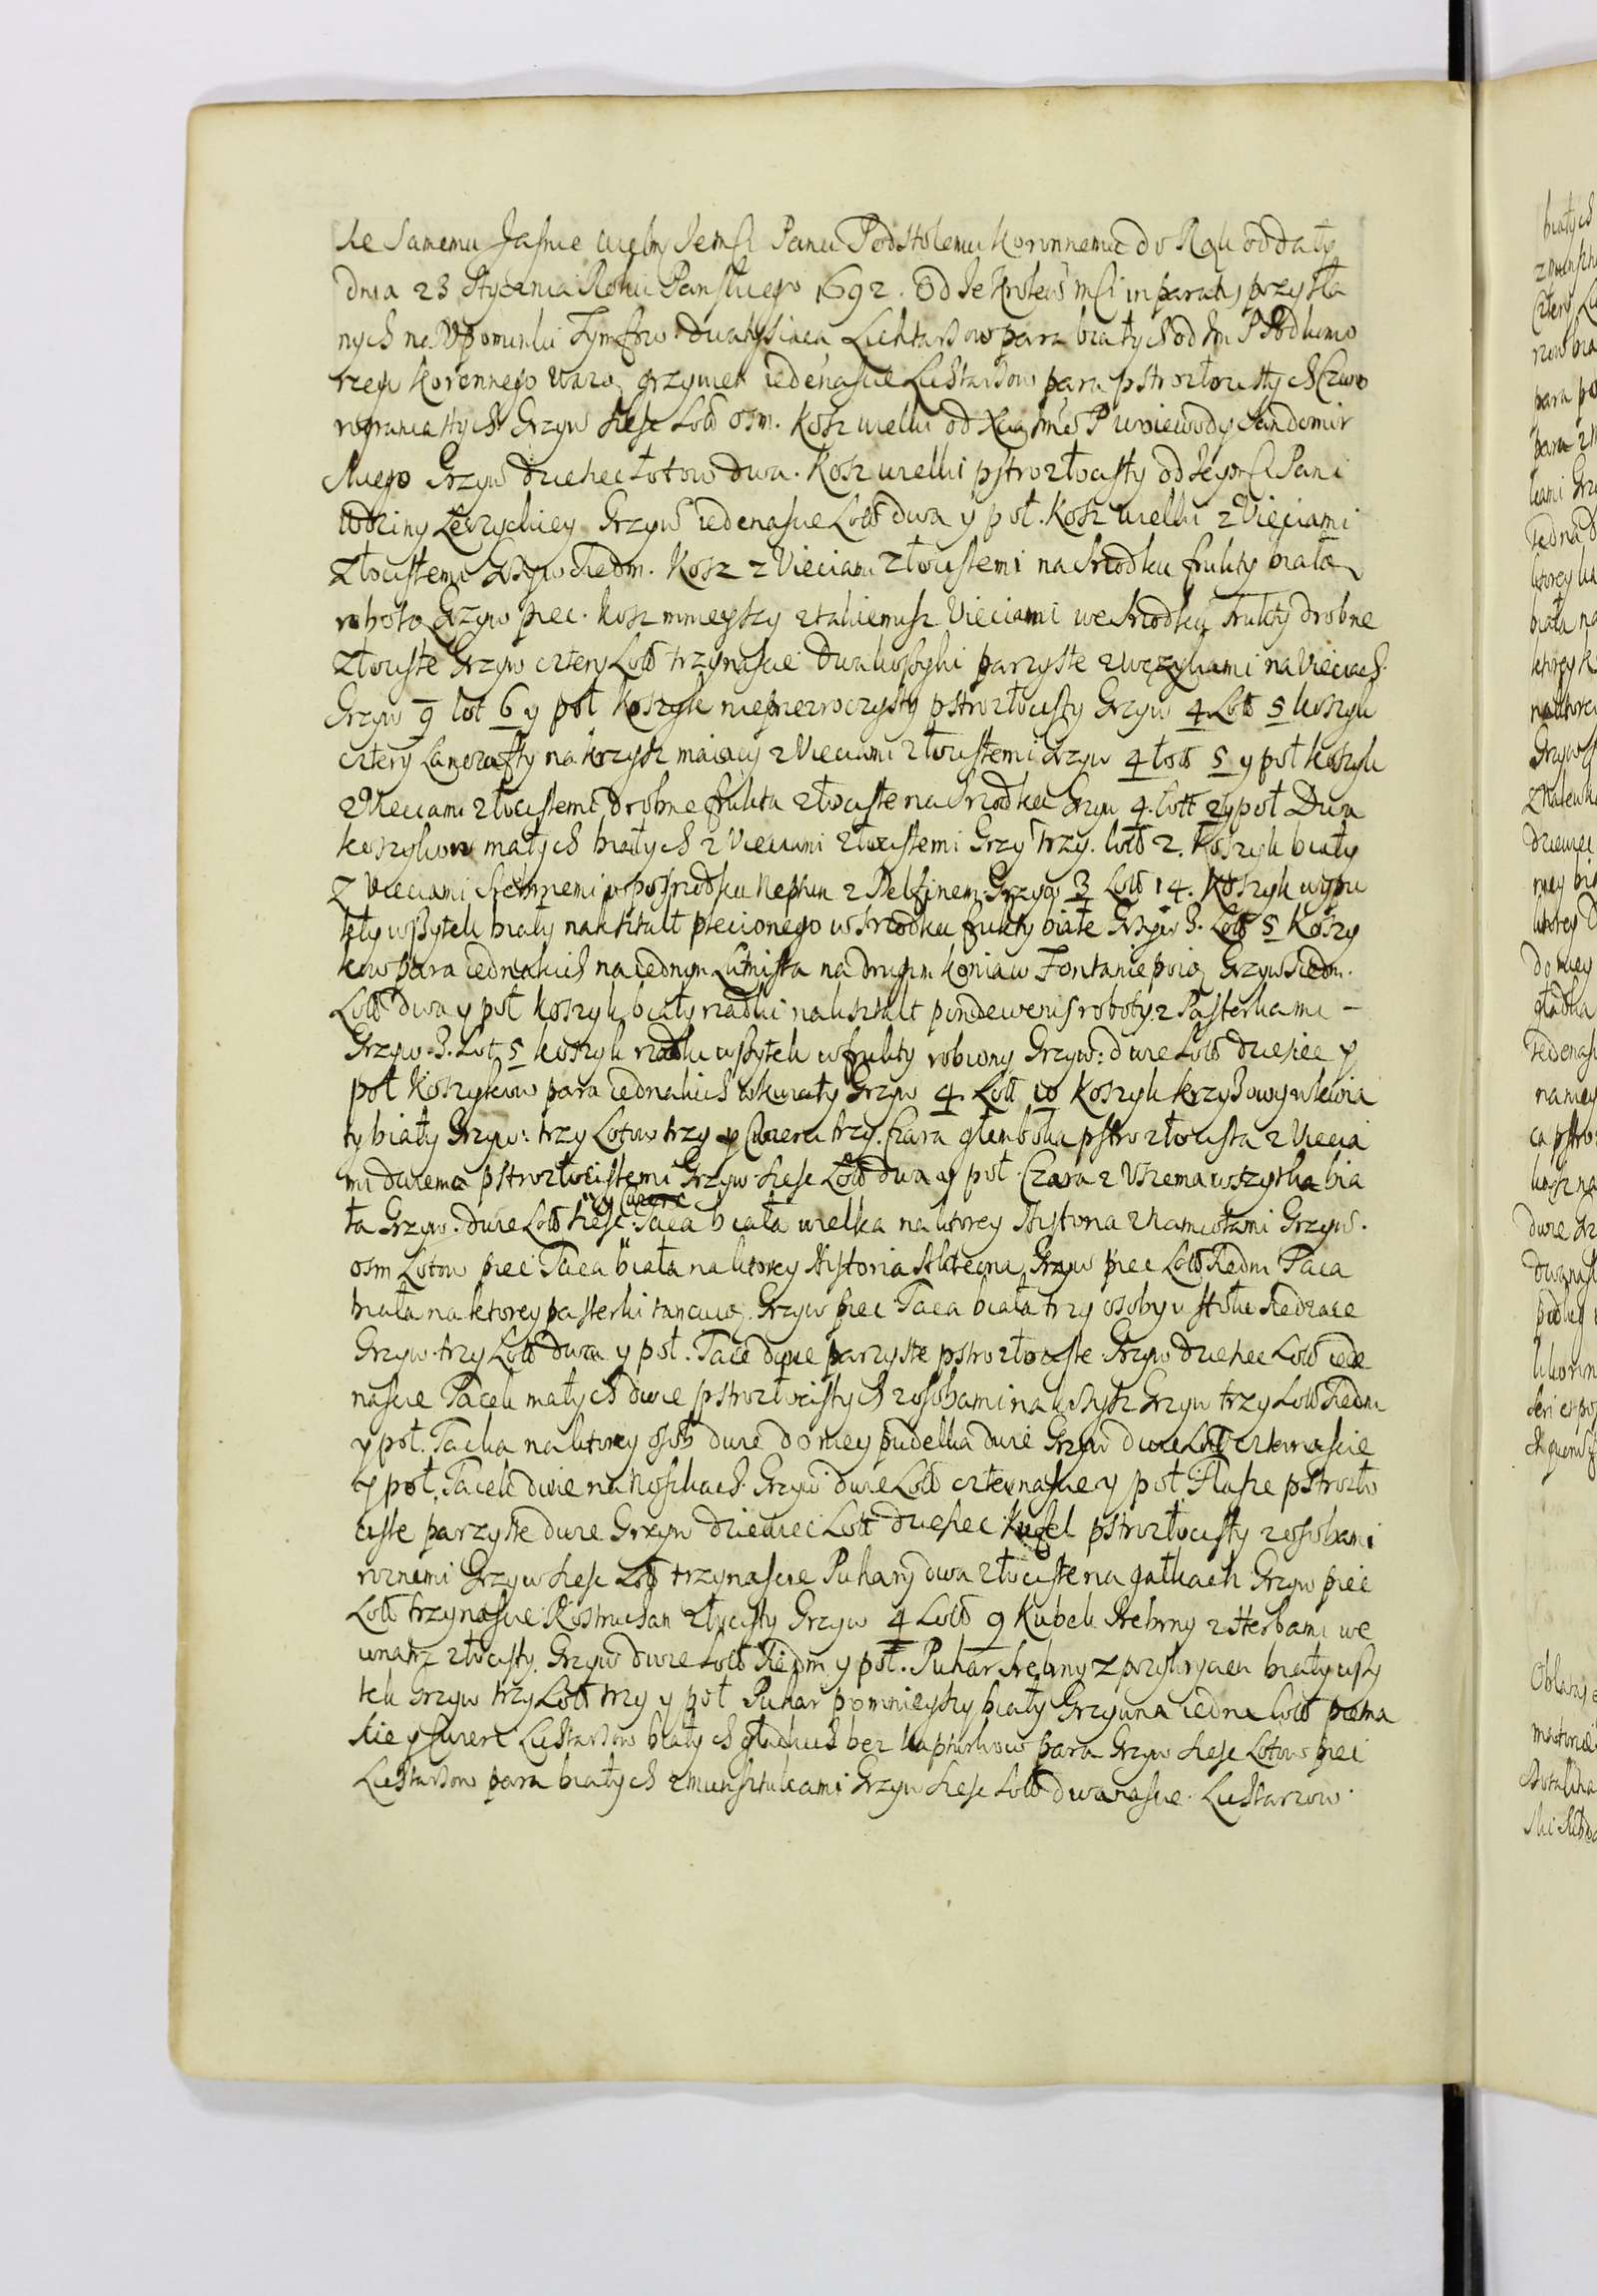 sie Samemu Jasnie Wielm Jemsci Panu Podstolemu Koronnemu do Rąk oddały
dnia 23 Stycznia Roku Panskiego 1692. Od Je Krolews Msci in paratis przysła
nych na Upominki Tymfow dwatysiąca Lichtarzow para białych od Jm P Podkomo
rzego Koronnego Wazą grzywien iedenascie Lichtarzow para pstrozłocistych Czwo
rograniastych Grzyw szesc Lott osm. Kosz wielki od Xcia Jms P Woiewody Sandomir
skiego Grzyw dziesiec Łotow dwa. Kosz wielki pstrozłocisty od Jeymsci Pani
Lęczyckiey Grzyw iedenascie Lott dwa y poł. Kosz wielki z Vieciami
Złocistemi Grzyw siedm. Kosz z Vieciami złocistemi na srzodku frukty białą
robotą Grzyw piec. Kosz mnieyszy ztakiemisz Vieciami we srzodku frukty drobne
złociste Grzyw cztery Lott trzynascie Dwa koszyki parzyste z Wężykami na Vieciach
Grzyw 9 lot 6 y poł Koszyk nieprzezroczysty pstrozłocisty Grzyw 4 Lott 5 koszyk
cztery na krzysz maiący z Vieciami złocistemi Grzyw 4 Lott 5 y poł koszyk
z Vieciami złocistemi drobne frukta złociste na srzodku Grzyw 4. Lott 2 y poł Dwa
koszykow małych białych z Vieciami złocistemi Grzyw trzy. lott 2. Koszyk biały
z Vieciami srebrnemi w posrzodku Neptun z Delfinem Grzyw 3 Lott 14. Koszyk wypu
kły wszytek biały naksztalt plecionego w srzodku frukty białe Grzyw 3. Lott 5 Koszy
kow para iednakich na iednym Lutnista na drugim konia w Fontanie poią Grzyw siedm.
Lott dwa y poł koszyk biały rzadki naksztalt roboty z Pasterkami –
Grzyw 3. Lot 5 koszyk rzadki wszytek w frukty robiony Grzyw: dwie Lott dziesiec y
poł Koszykow para iednakich w kwiaty Grzyw 4 Lott 10 Koszyk krzyzowy w kwia
ty biały Grzyw: trzy Lotow trzy y Cwierci trzy. Czara głemboka pstrozłocista z Viecia
mi dwiema pstrozłocistemi Grzyw szesc Lott dwa y poł. Czara z Uszema wszytka bia
ła Grzyw. dwie Lott szesc. Taca biała wielka na ktorey Historia z Namiotami Grzyw.
osm Lotow piec Taca biała na ktorey Historia Grzyw piec Lott siedm Taca
biała na ktorey pasterki tancuią. Grzyw piec Taca biała trzy osoby u stołu siedzace
Grzyw trzy Lott dwa y poł. Tace dwie parzyste pstrozłociste Grzyw dziesiec Lott iede
nascie Tacek małych dwie pstrozłocistych z osobami na ksztysz Grzyw trzy Lott siedm
y poł. Tacka na ktorey osob dwie do niey pudełka dwie Grzyw dwie Lott czternascie
y poł. Tacek dwie na Noszkach Grzyw dwie Lott czternascie y poł Flasze pstrozło
ciste parzyste dwie Grzyw dziewiec Lott dziesiec Kufel pstrozłocisty z osobami
roznemi Grzyw szesc Lott trzynascie Puhary dwa złociste na gałkach Grzyw piec
Lott trzynascie Rostruchan złocisty Grzyw 4 Lott 9 Kubek srebrny z Herbami we
wnatrz złocisty. Grzyw dwie Lott siedm y poł. Puhar srebrny z przykryciem biały wszy
tek Grzyw trzy Lott trzy y poł Puhar pomnieyszy biały Grzywna iedna Lott pietna
scie y Cwierc Lichtarzow białych gładkich bez kapturkow para Grzyw szesc Lotow piec
Lichtarzow para białych z munsztukami Grzyw szesc Lott dwanascie. Lichtarzow